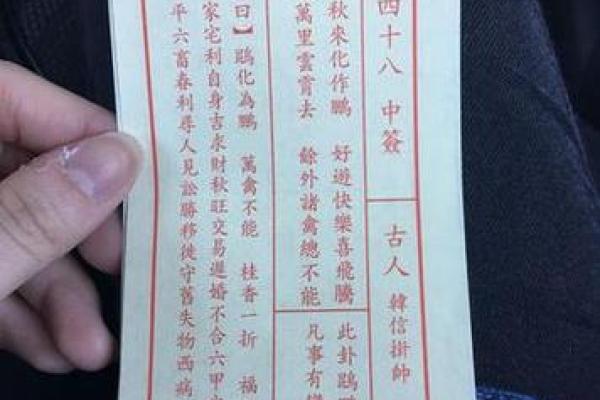 四十八 中簽
古人 韓信掛帥
秋來化作鵬 好遊快樂喜飛騰
萬里雲霄去 餘外諸禽總不能
此卦鵾
凡事有
曰】鵾化為鵬 萬禽不能 桂香一折 福
家宅利自身吉求財秋旺交易遲婚不合六甲
平六畜春利尋人見訟勝移徙守舊失物西病